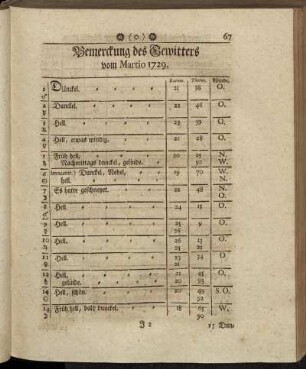 (0) 67
Bemerckung des Gewitters
vom Martio 1729.
1 Dünckel. 21 36 O.
2 Dunckel. 22 46 O.
3 Hell. 23 38 O.
4 Hell, etwas windig. 21 28 O.
5 Früh hell, 20 25 N.
Nachmittags dunckel, gelinde. 50 W.
Dunckel, Nebel, 19 70 W.
hell. N.
7 Es hatte geschneyet. 22 48 N.
O.
8 Hell. 24 15 O.
9 Hell. 25 9 O.
24
10 Hell. 26 13 O.
23 21
11 Hell. 23 24 O.
21
12 Hell, 21 45 O.
gelinde. 20 53
13 Hell, schön. 20 49 S.O.
52
14 Früh hell, bald dunckel. 18 65 W.
50
J 2 15 Dun-